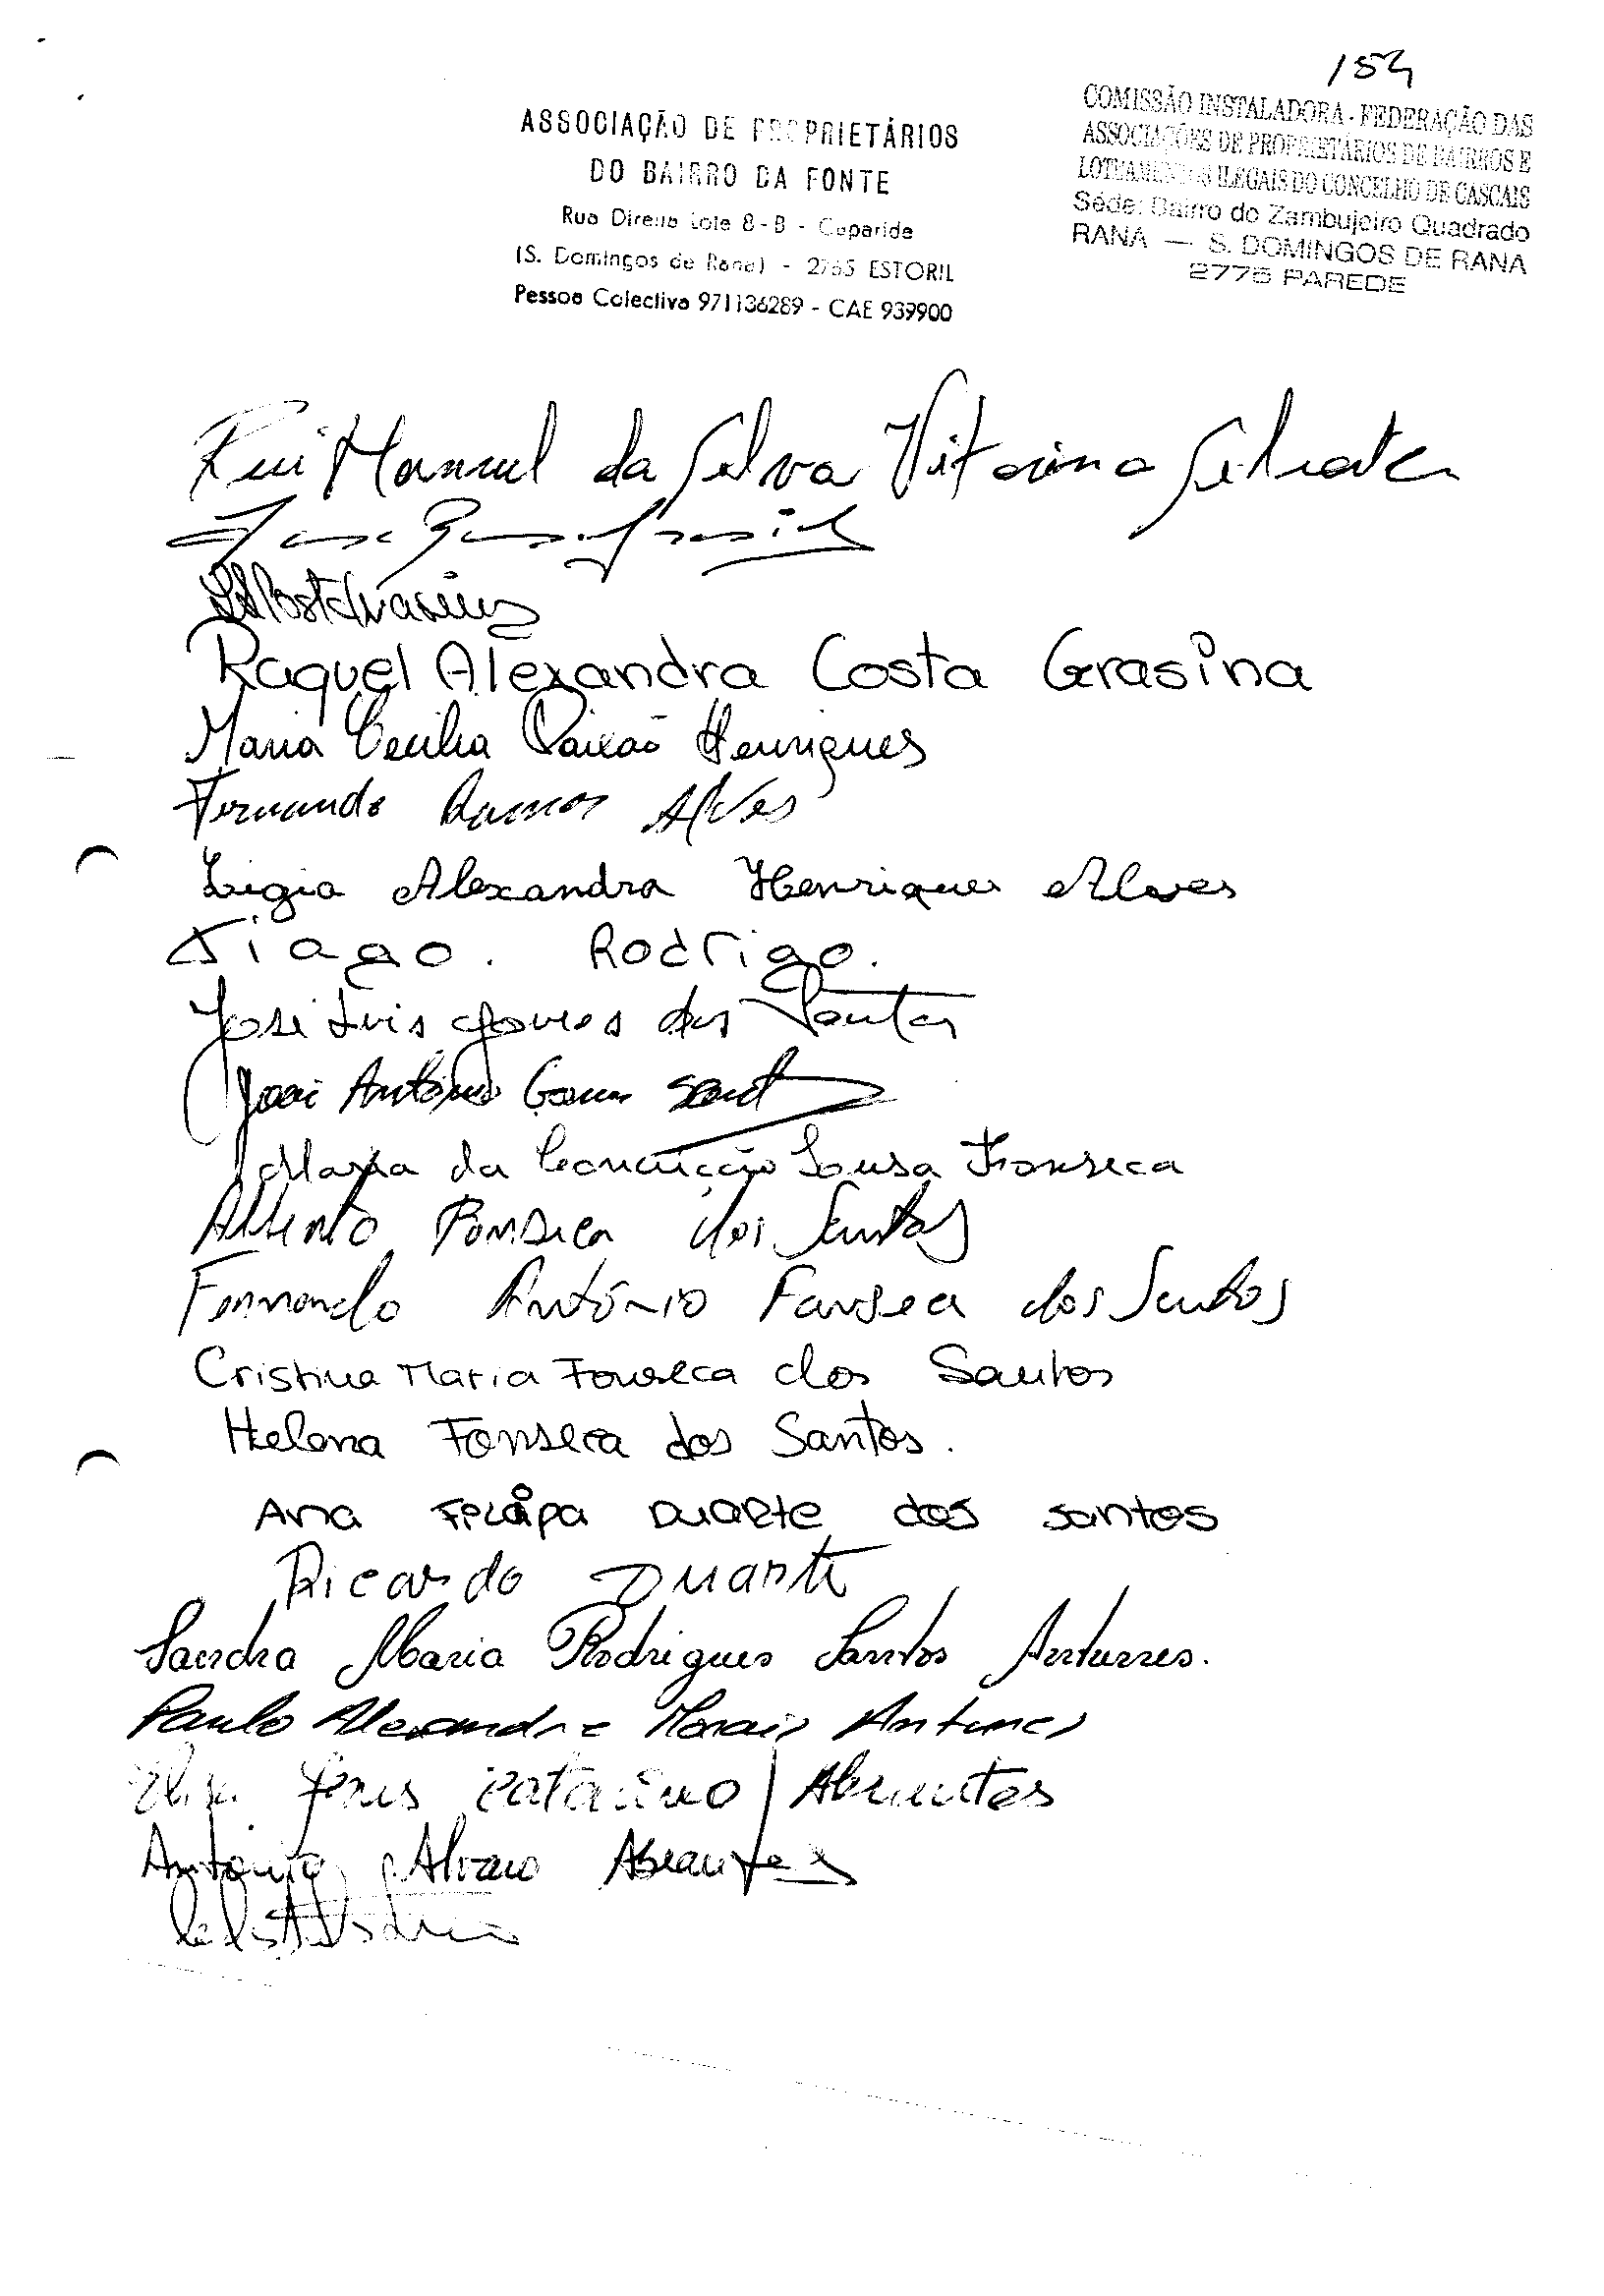 154
ASSOCIAÇÃO DE PROPRIETÁRIOS
DO BAIRRO DA FONTE
Rua Direita Lote 8-B - Caparide
(S. Domingos de Rana) - 2765 ESTORIL
Pessoa Colectiva 971136289 - CAE 939900
COMISSÃO INSTALADORA - FEDERAÇÃO DAS
ASSOCIAÇÕES DE PROPRIETÁRIOS DE BAIRROS E
LOTEAMENTOS ILEGAIS DO CONCELHO DE CASCAIS
Séde: Bairro do Zambujeiro Quadrado
RANA — S. DOMINGOS DE RANA
2775 PAREDE
Rui Manuel da Silva Vitorino
Raquel Alexandra Costa Grasina
Maria Cecilia Paixão Henriques
Fernando Ramos Alves
Ligia Alexandra Henriques Alves
Tiago. Rodrigo.
José Luis Gomes dos Santos
António Gomes Sant
Maria da Conceição Sousa Fonseca
Alberto Fonseca dos Santos
Fernando António Fonseca dos Santos
Cristina Maria Fonseca dos Santos
Helena Fonseca dos Santos.
Ana Filipa Duarte dos santos
Ricardo Duarte
Sandra Maria Rodrigues Santos Antunes.
Paulo Alexandre Morais Antunes
Catarino Abrantes
António Alvaro Abrantes